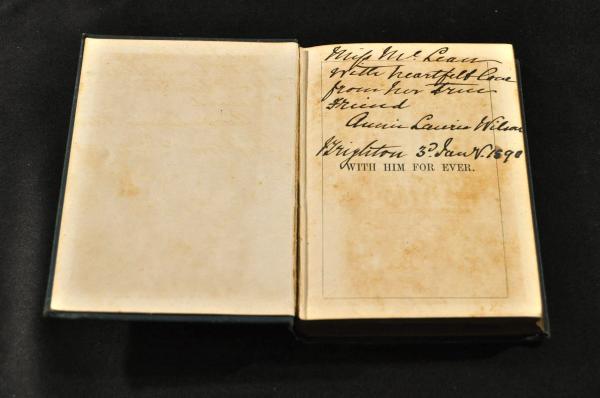 Miss Mc Lean
with heartfelt love
from her true
Friend
Annie Laurie Wilson
Brighton 3d Jany. 1890
WITH HIM FOR EVER.